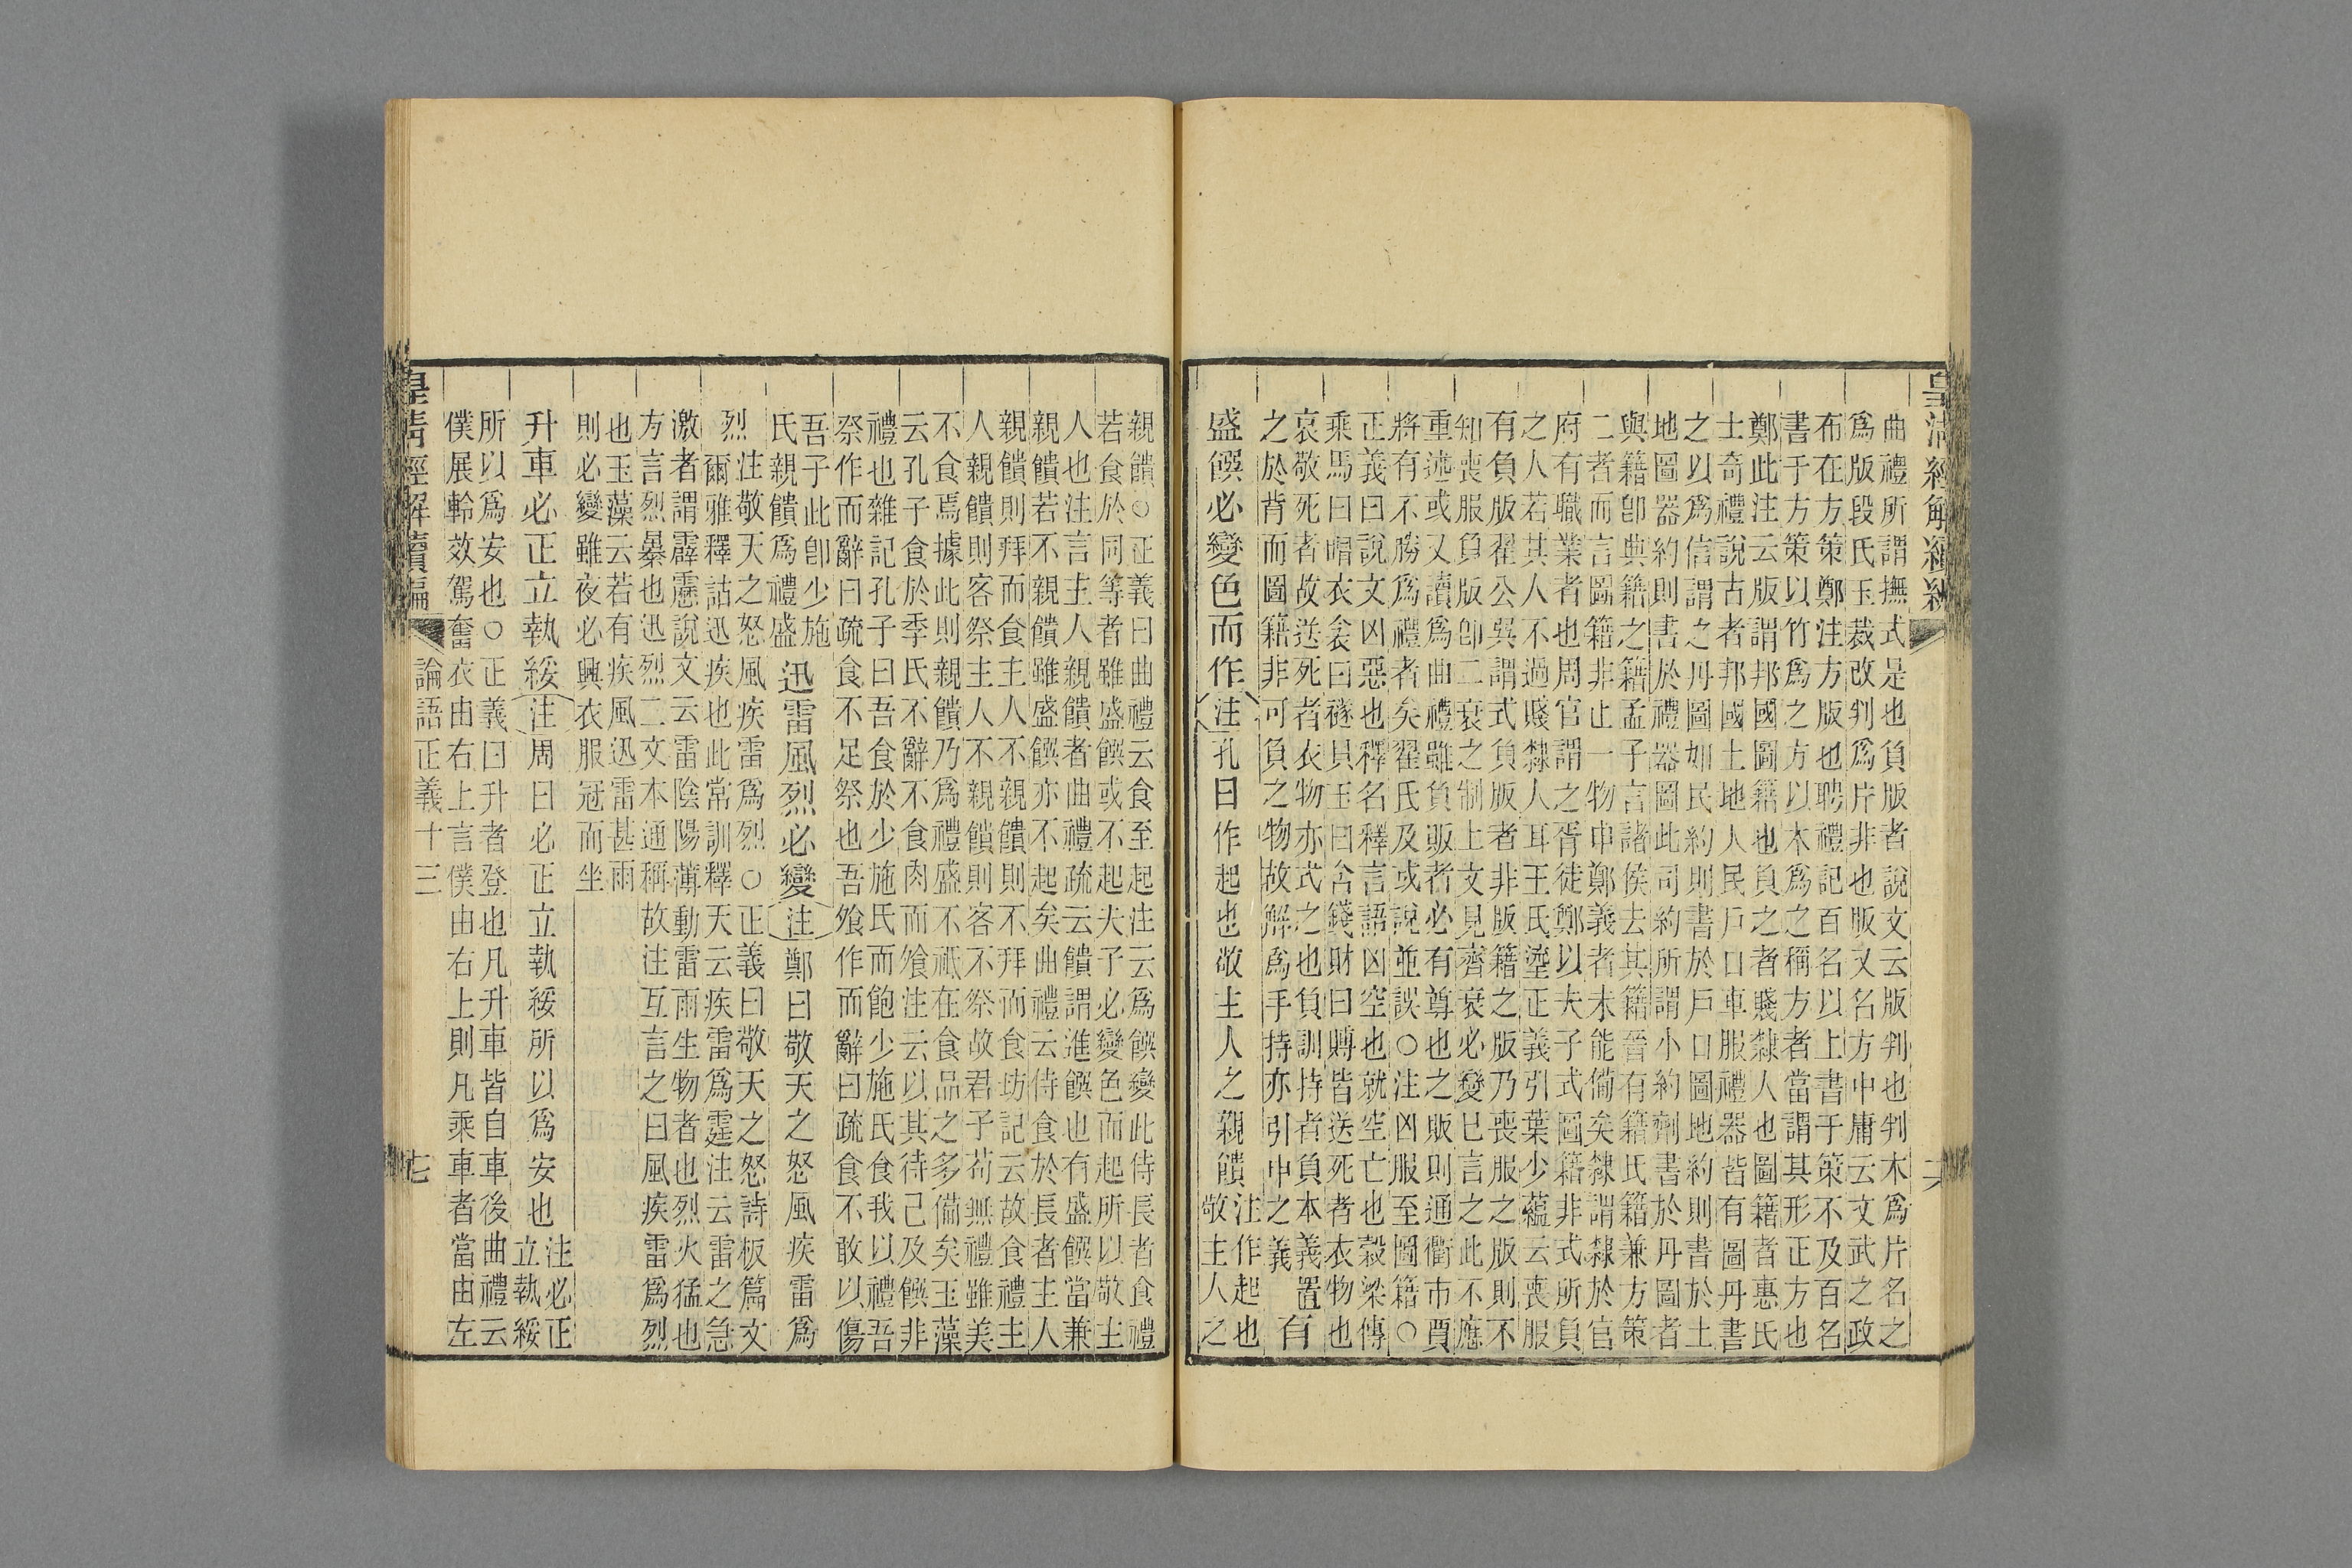 皇清經解續編
曲禮所謂撫式是也負版者說文云版判也判木爲片名之
爲版段氏玉裁改判爲片非也版又名方中庸云文武之政
布在方策鄭注方版也聘禮記百名以上書于策不及百名
書于方策以竹爲之方以木爲之稱方者當謂其形正方也
鄭此注云版謂邦國圖籍也負之者賤隸人也圖籍者惠氏
士奇禮說古者邦國土地人民戶口車服禮器皆有圖丹書
之以爲信謂之丹圖如民約則書於戶口圖地約則書於土
地圖器約則書於禮器圖此司約所謂小約劑書於丹圖者
與籍卽典籍之籍孟子言諸侯去其籍晉有籍氏籍兼方策
二者而言圖籍非止一物申鄭義者未能備矣隸謂隸於官
府有職業者也周官謂之胥徒鄭以夫子式圖籍非式所負
之人若其人不過賤隸人耳王氏瀅正義引葉少蘊云喪服
有負版翟公吳謂式負版者非版籍之版乃喪服之版則不
知喪服負版卽二衰之制上文見齊衰必變已言之此不應
重述或又讀爲曲禮雖負販者必有尊也之販則通衢市賈
將有不勝爲禮者矣翟氏及或說並誤○注凶服至圖籍○
正義曰說文凶惡也釋名釋言語凶空也就空亡也穀梁傳
乘馬曰賵衣衾曰襚貝玉曰含錢財曰賻皆送死者衣物也
哀敬死者故送死者衣物亦式之也負訓持者負本義置
之於背而圖籍非可負之物故解爲手持亦引申之義
有
盛饌必變色而作注孔曰作起也敬主人之親饋
注作起也
敬主人之
六
親饋○正義曰曲禮云食至起注云爲饌變此侍長者食禮
若食於同等者雖盛饌或不起夫子必變色而起所以敬主
人也注言主人親饋者曲禮疏云饋謂進饌也有盛饌當兼
親饋若不親饋雖盛饌亦不起矣曲禮云侍食於長者主人
親饋則拜而食主人不親饋則不拜而食坊記云故食禮主
人親饋則客祭主人不親饋則客不祭故君子苟無禮雖美
不食焉據此則親饋乃爲禮盛不祇在食品之多備矣玉藻
云孔子食於季氏不辭不食肉而飧注云以其待己及饌非
禮也雜記孔子曰吾食於少施氏而飽少施氏食我以禮吾
祭作而辭曰疏食不足祭也吾飧作而辭曰疏食不敢以傷
吾子此卽少施
氏親饋爲禮盛
迅雷風烈必變注鄭曰敬天之怒風疾雷爲
烈
注敬天之怒風疾雷爲烈○正義曰敬天之怒詩板篇文
爾雅釋詁迅疾也此常訓釋天云疾雷爲霆注云雷之急
激者謂霹靂說文云雷陰陽薄動雷雨生物者也烈火猛也
方言烈暴也迅烈二文本通稱故注互言之曰風疾雷爲烈
也玉藻云若有疾風迅雷甚雨
則必變雖夜必興衣服冠而坐
升車必正立執綏注周曰必正立執綏所以爲安也
注必正
立執綏
所以爲安也○正義曰升者登也凡升車皆自車後曲禮云
僕展軨效駕奮衣由右上言僕由右上則凡乘車者當由左
皇清經解續編
論語正義十三
七